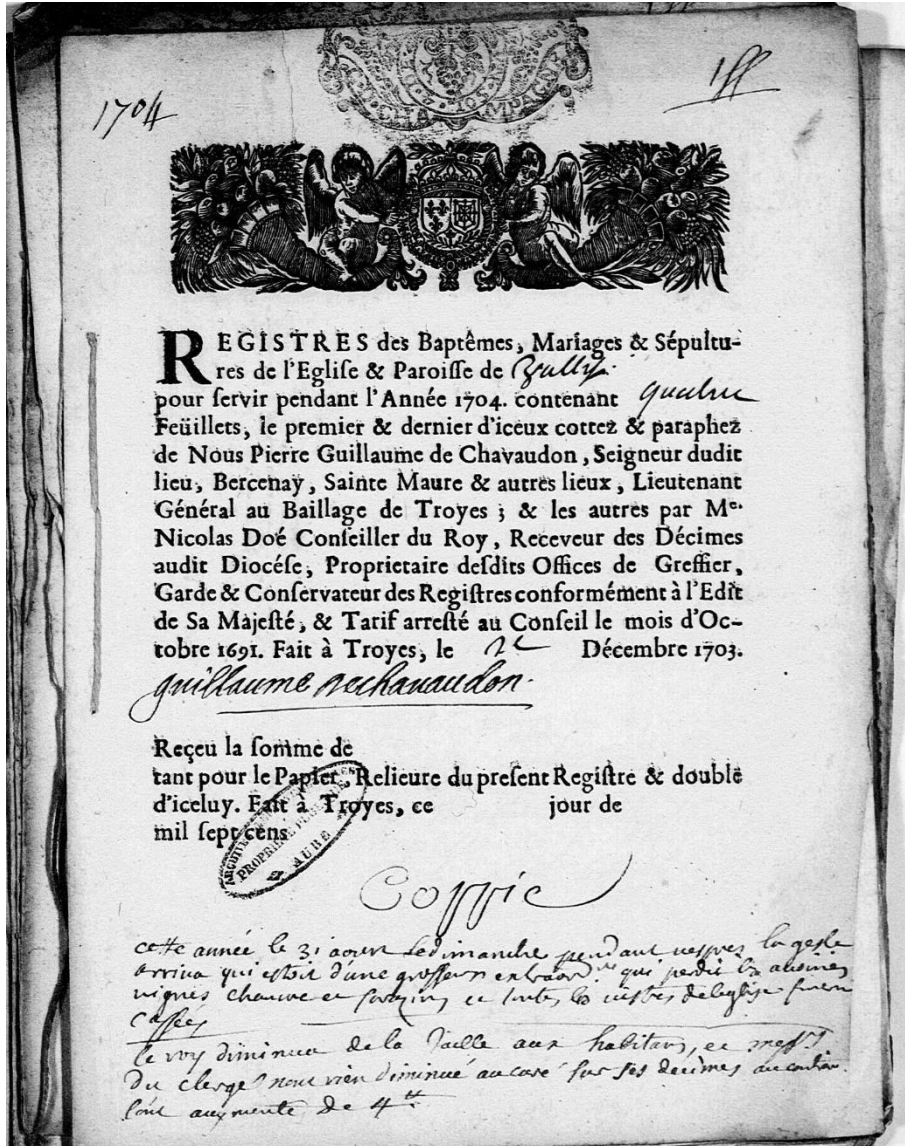 1704
CHAMPAGNE
REGISTRES des Baptêmes, Mariages & Sépultu-
res de l'Egliſe & Paroiſſe de
pour ſervir pendant l'Année 1704. contenant quatre
Feüillets, le premier & dernier d'iceux cottez & paraphez
de Nous Pierre Guillaume de Chavaudon, Seigneur dudit
lieu, Bercenay, Sainte Maure & autres lieux, Lieutenant
Général au Baillage de Troyes; & les autres par Me.
Nicolas Doé Conſeiller du Roy, Receveur des Décimes
audit Diocéſe, Proprietaire deſdits Offices de Greffier,
Garde & Conſervateur des Regiſtres conformément à l'Edit
de Sa Majeſté, & Tarif arreſté au Conſeil le mois d'Oc-
tobre 1691. Fait à Troyes, le Décembre 1703.
guillaume dechavaudon.
Reçeu la ſomme de
tant pour le Papier, Relieure du preſent Regiſtre & double
d'iceluy. Fait à Troyes, ce jour de
mil ſept cens
PROPRIÉTÉ PUBLIQUE
AUBE
Coppie
cette année le 31 aoust le dimanche pendant vespres la gresle
arriva qui estoit d'une grosseur extraord.re que perdit les avoines
vignes chanve et et toutes les vistres de leglise furent
cassées
le roy diminua de la Taille aux habitans, et mess.rs
du clergé n'ont rien diminué au curé sur ses decimes au contraire
l'ont augmenté de 4tt